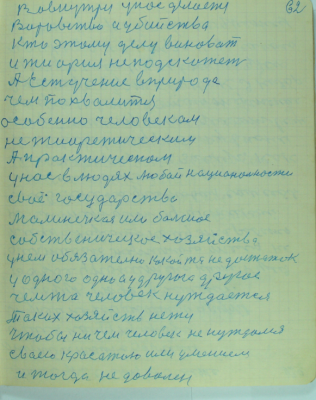 Вовнутри у нас думает 62
Воровство и убийства
Кто этому делу виноват
и теория не подскажет
А Есть учение в природе
чем похвалится
особенно человекам
не теоретическим
А практическом
у нас в людях любой национальности
своё государство
Маленькая или большое
собственическое хозяйства
у ней обязательно какой та недостаток
у одного одно а у другого другое
чем та человек нуждается
таких хозяйств нету
Чтобы ни чем человек не нуждался
своею красатою или умением
и тогда не доволен